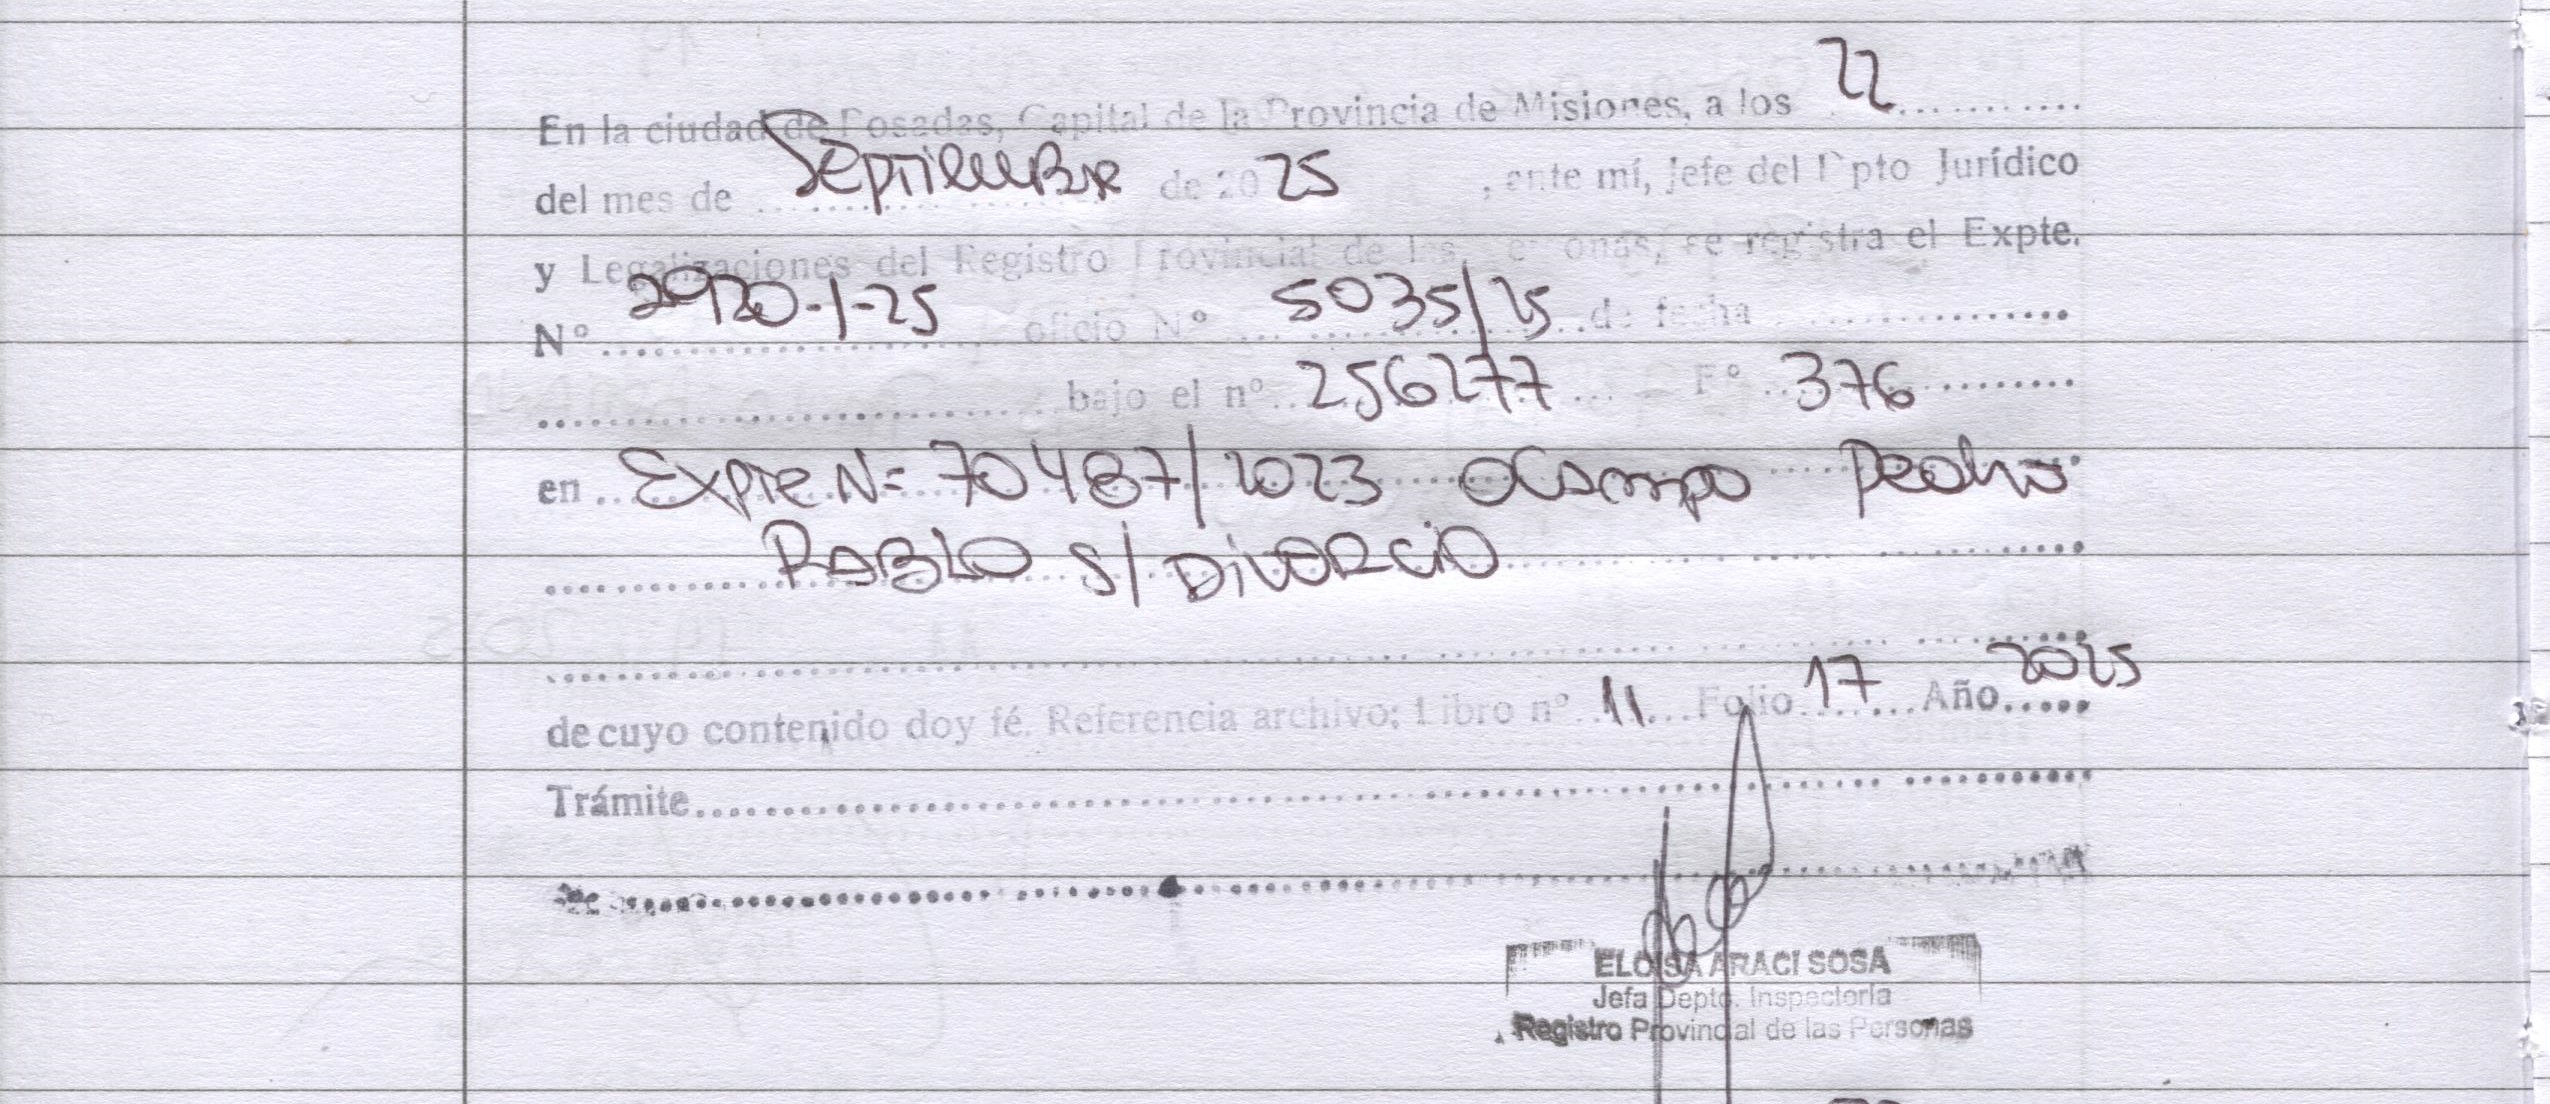 En la ciudad de Posadas, Capital de la Provincia de Misiones, a los 22
del mes de Septiembre de 2025, ante mí, Jefe del Dpto Jurídico
y Legalizaciones del Registro Provincial de las Personas, se registra el Expte.
Nº 2920-1-25 oficio Nº 5035/25 de fecha
bajo el nº 256277 Fº 376
en Expte N= 70487/2023 Ocampo Pedro
PABLO S/ DIVORCIO
de cuyo contenido doy fé. Referencia archivo: Libro nº 11 Folio 17 Año 2025
Trámite
ELOISA ARACI SOSA
Jefa Depto. Inspectoría
Registro Provincial de las Personas